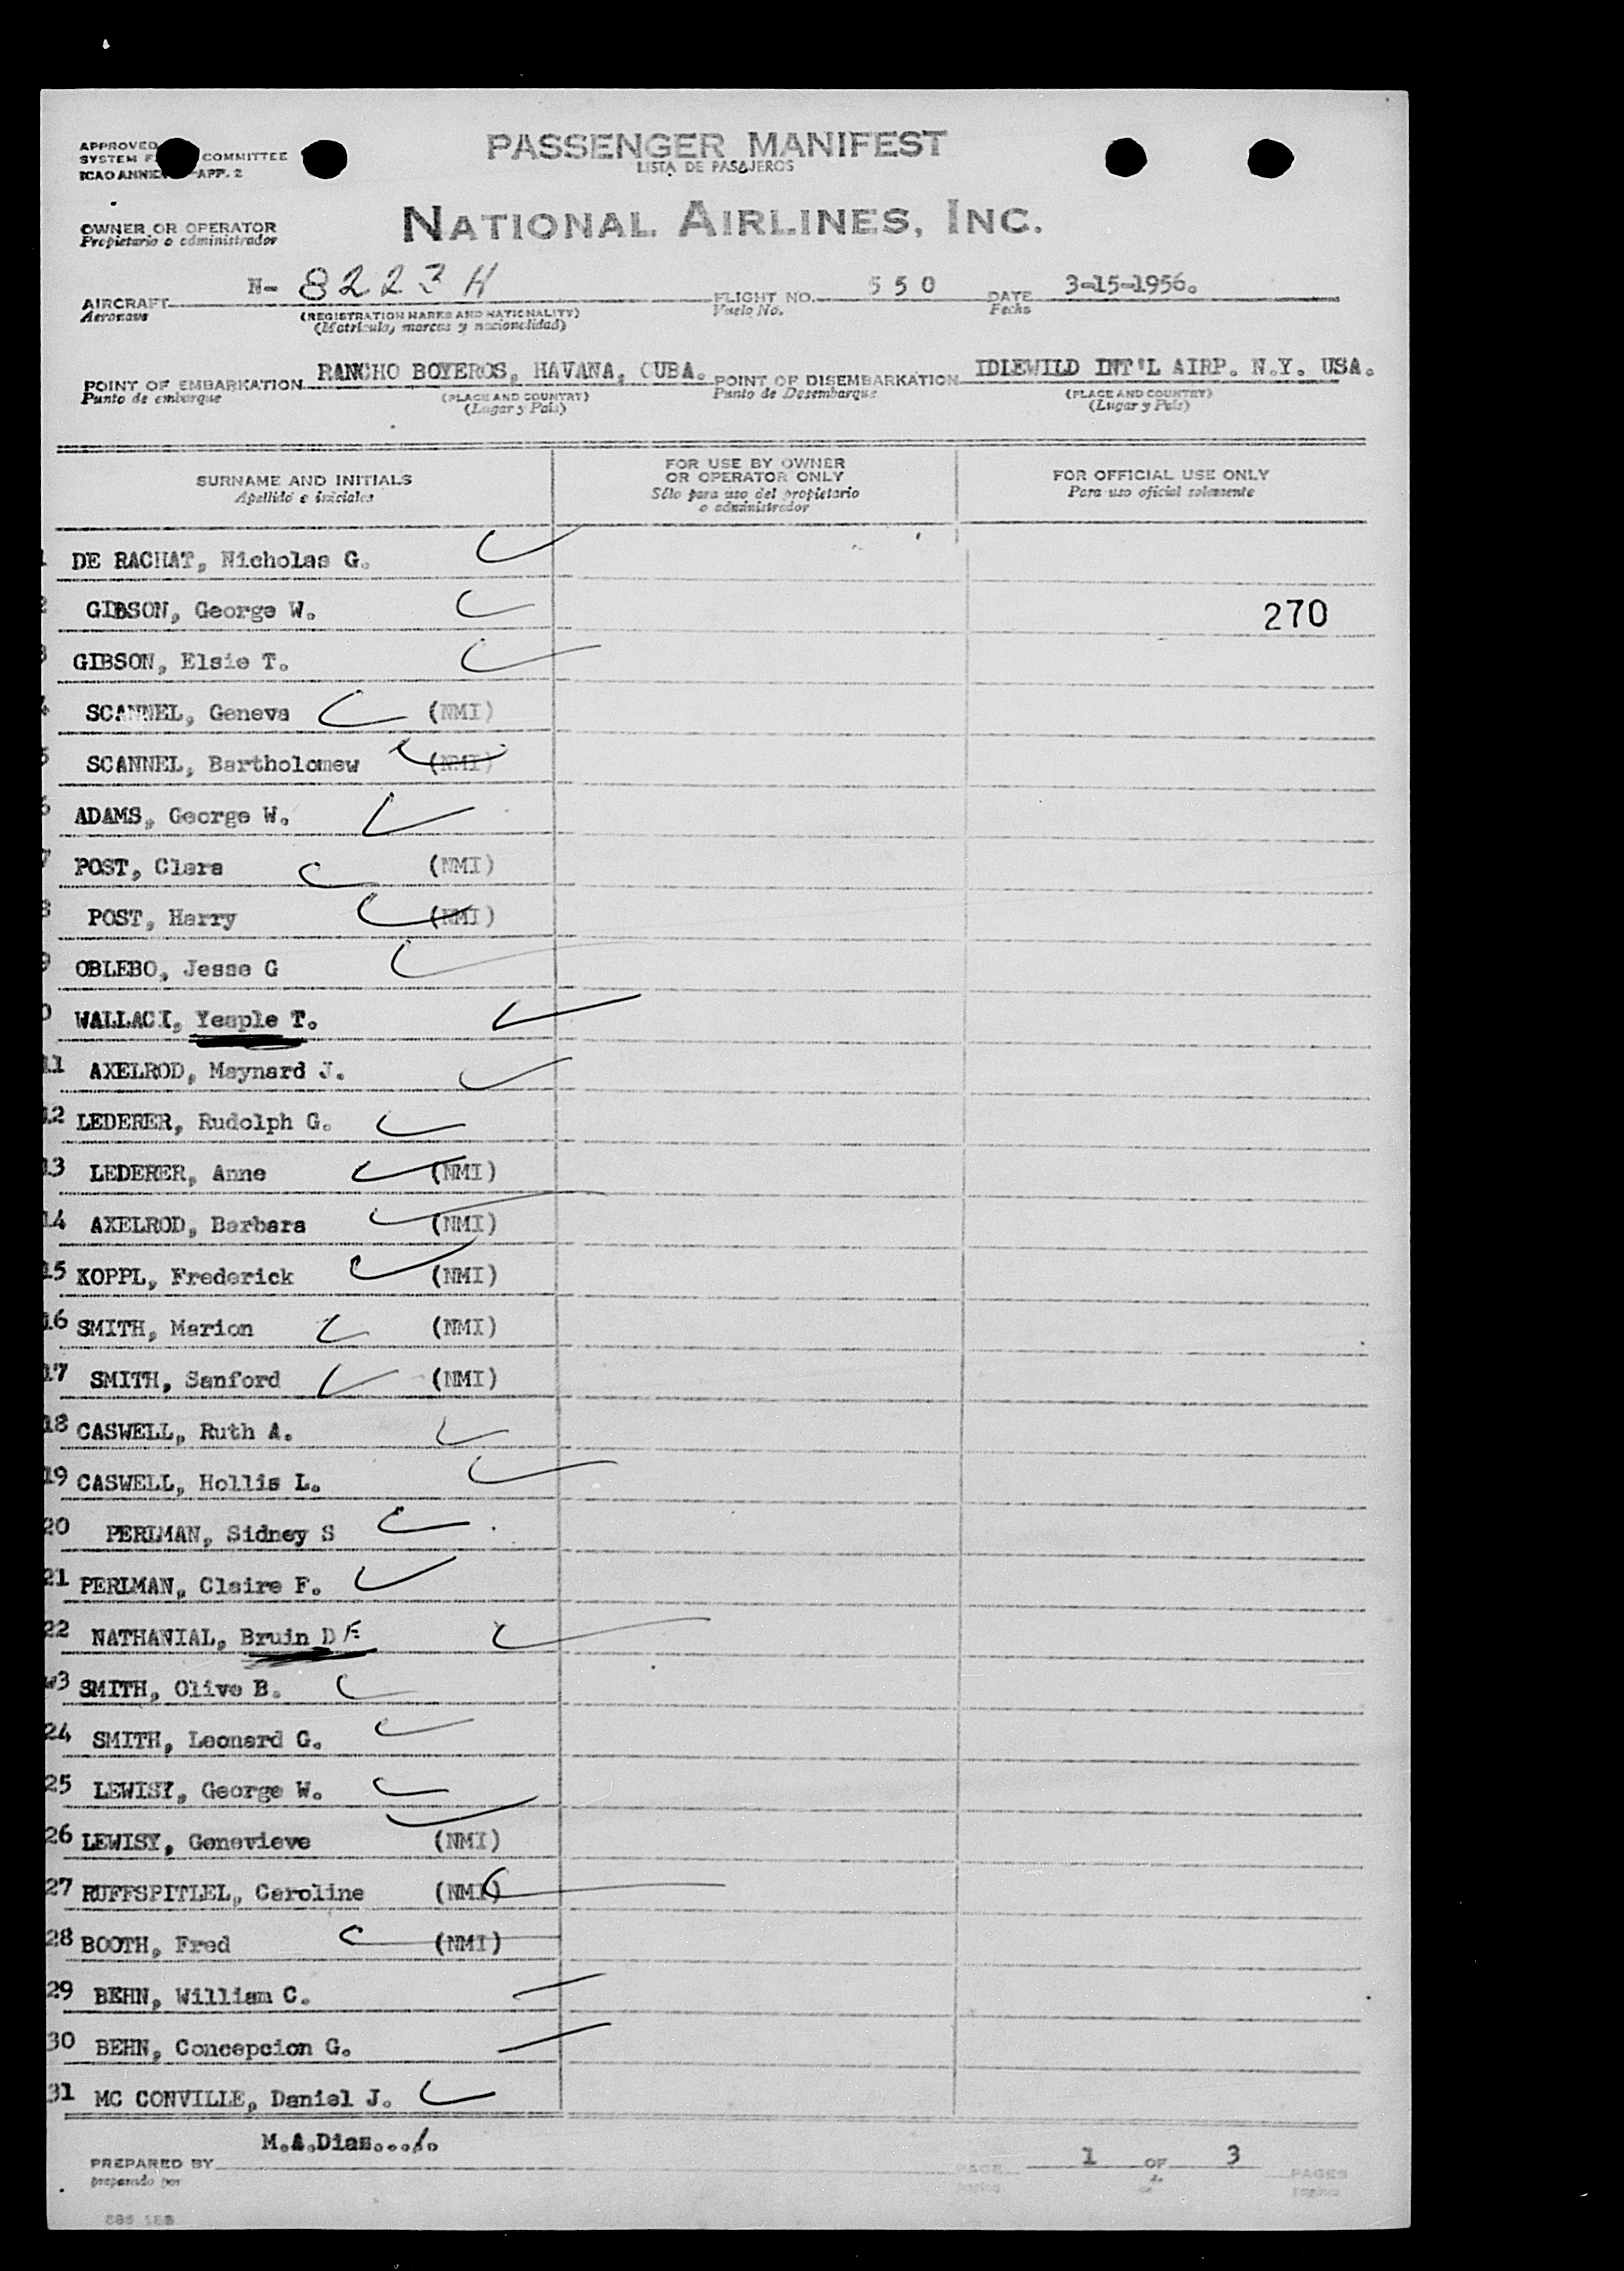 PASSENGER MANIFEST
LISTA DE PASAJEROS
APPROVED
SYSTEM COMMITTEE
ICAO ANNEX APP. 2
OWNER OR OPERATOR
Propietario o administrador
NATIONAL AIRLINES, INC.
AIRCRAFT N- 8223H FLIGHT NO. 550 DATE 3-15-1956.
Aeronave (REGISTRATION MARKS AND NATIONALITY) Vuelo No. Fecha
(Matricula, marcas y nacionalidad)
POINT OF EMBARKATION RANCHO BOYEROS, HAVANA, CUBA. POINT OF DISEMBARKATION IDLEWILD INT'L AIRP. N.Y. USA.
Punto de embarque (PLACE AND COUNTRY) Punto de Desembarque (PLACE AND COUNTRY)
(Lugar y País) (Lugar y País)
SURNAME AND INITIALS FOR USE BY OWNER OR OPERATOR ONLY FOR OFFICIAL USE ONLY
Apellido e iniciales Sólo para uso del propietario o administrador Para uso oficial solamente
1 DE RACHAT, Nicholas G.
2 GIBSON, George W. 270
3 GIBSON, Elsie T.
4 SCANNEL, Geneva (NMI)
5 SCANNEL, Bartholomew (NMI)
6 ADAMS, George W.
7 POST, Clara (NMI)
8 POST, Harry (NMI)
9 OBLEBO, Jesse G
0 WALLACI, Yeaple T.
11 AXELROD, Maynard J.
12 LEDERER, Rudolph G.
13 LEDERER, Anne (NMI)
14 AXELROD, Barbara (NMI)
15 KOPPL, Frederick (NMI)
16 SMITH, Marion (NMI)
17 SMITH, Sanford (NMI)
18 CASWELL, Ruth A.
19 CASWELL, Hollis L.
20 PERLMAN, Sidney S
21 PERLMAN, Claire F.
22 NATHANIAL, Bruin D F
w3 SMITH, Olive B.
24 SMITH, Leonard G.
25 LEWISY, George W.
26 LEWISY, Genevieve (NMI)
27 RUFFSPITLEL, Caroline (NMI)
28 BOOTH, Fred (NMI)
29 BEHN, William C.
30 BEHN, Concepcion G.
31 MC CONVILLE, Daniel J.
PREPARED BY M.A.Diaz..../. PAGE 1 OF 3 PAGES
preparado por